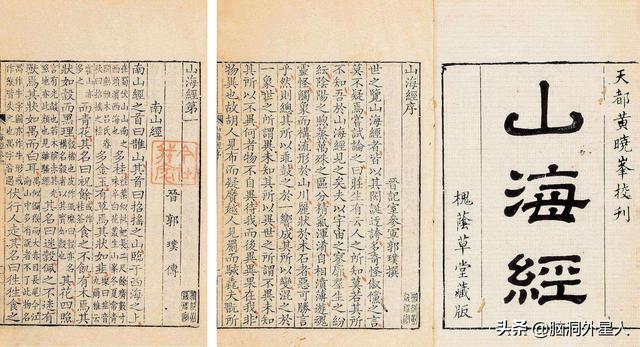 天都黃曉峯校刊
山海經
槐蔭草堂藏版
山海經序
晉記室參軍郭璞撰
世之覽山海經者皆以其閎誕迂誇多奇怪俶儻之言
莫不疑焉嘗試論之曰莊生有云人之所知莫若其所
不知吾於山海經見之矣夫以宇宙之寥廓羣生之紛
紜陰陽之煦蒸萬殊之區分精氣渾淆自相濆薄遊魂
靈怪觸像而搆流形於山川麗狀於木石者惡可勝言
乎然則總其所以乖鼓之於一響成其所以變混之於
一象世之所謂異未知其所以異世之所謂不異未知
其所以不異何者物不自異待我而後異異果在我非
物異也故胡人見布而疑黂越人見罽而駭毳夫翫所
山海經第一
晉 郭璞 傳
南山經
南山經之首曰䧿山其首曰招搖之山臨于西海之上
多桂
多金玉有草焉其狀如韭
而青花其名曰祝餘食之不飢有木焉其
狀如榖而黑理其花四照
其名曰迷榖佩之不迷有
獸焉其狀如禺而白耳
伏行人走其名曰狌狌食之
头条 @脑洞外星人